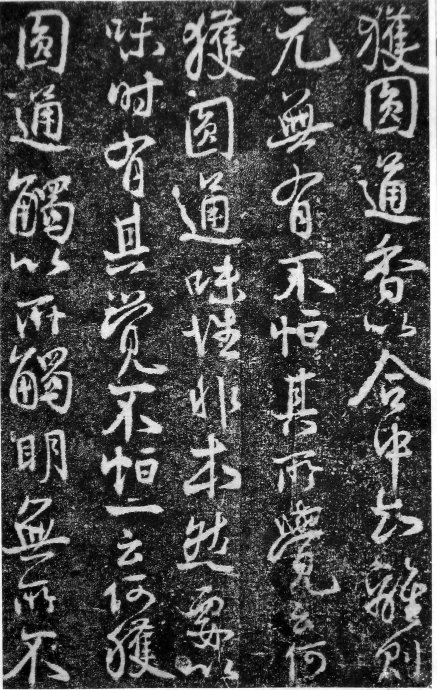 獲圓通香以合中知離則
元無有不恒其所覺云何
獲圓通味性非本然要以
味時有其覺不恒一云何獲
圓通觸以所觸明無所不